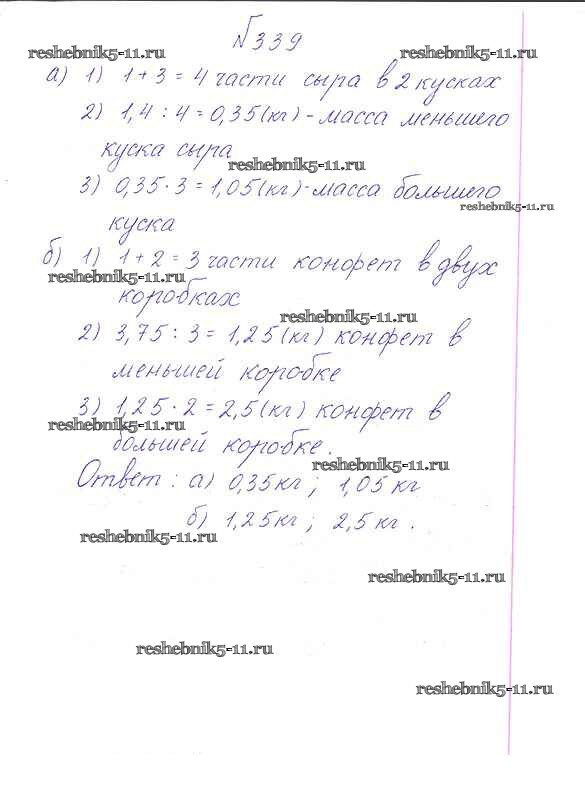 №339
resheb​nik5-11.ru resheb​nik5-11.ru
а) 1) 1 + 3 = 4 части сыра в 2 кусках
2) 1,4 : 4 = 0,35 (кг) - масса меньшего
куска сыра
reshebnik5-11.ru
3) 0,35 · 3 = 1,05 (кг) - масса большего
reshebnik5-11.ru
куска
б) 1) 1 + 2 = 3 части конфет в двух
reshebnik5-11.ru
коробках
reshebnik5-11.ru
2) 3,75 : 3 = 1,25 (кг) конфет в
меньшей коробке
3) 1,25 · 2 = 2,5 (кг) конфет в
reshebnik5-11.ru
большей коробке.
reshebnik5-11.ru
Ответ: а) 0,35 кг; 1,05 кг
б) 1,25 кг; 2,5 кг.
reshebnik5-11.ru
reshebnik5-11.ru
reshebnik5-11.ru
reshebnik5-11.ru